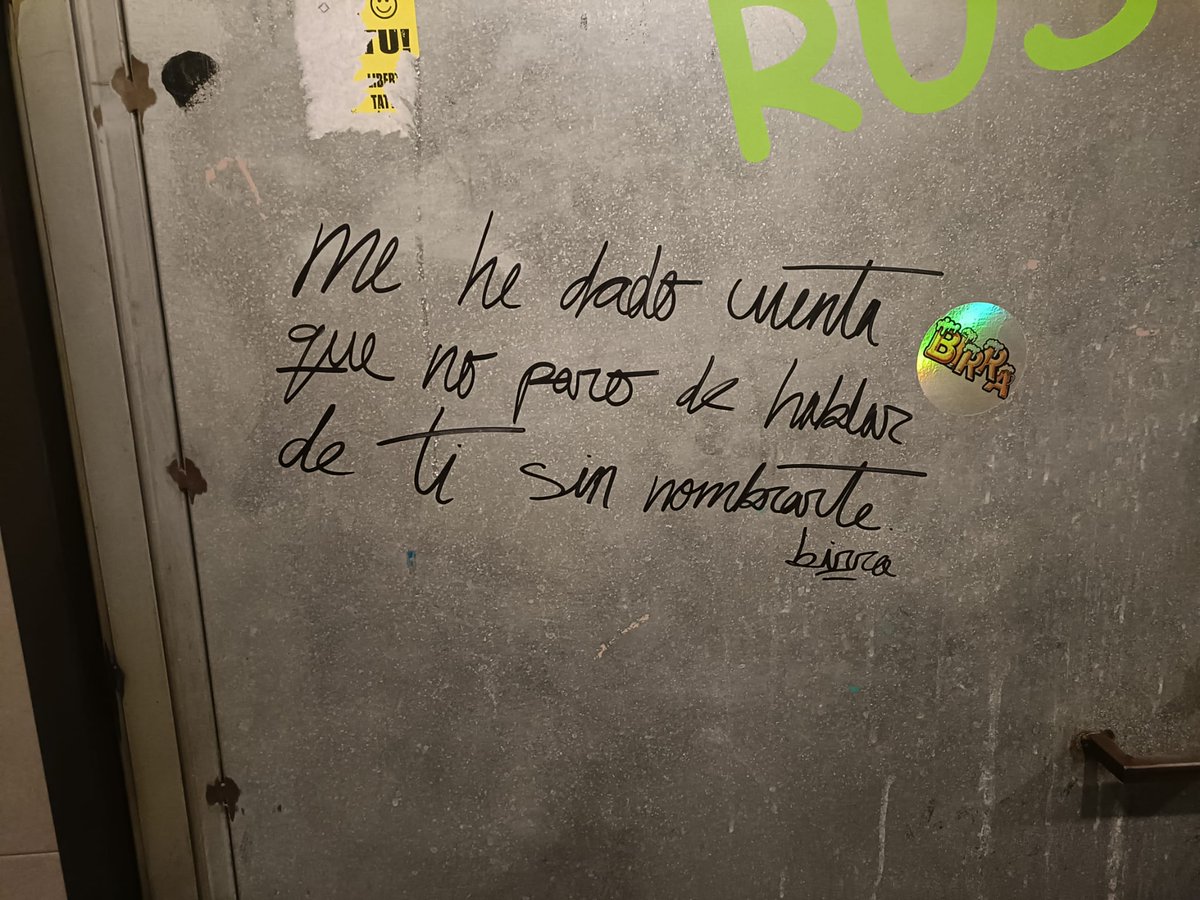 TU!
LIBER
TAT
RUS
Me he dado cuenta
que no paro de hablar
de ti sin nombrarte.
birra
BIRRA